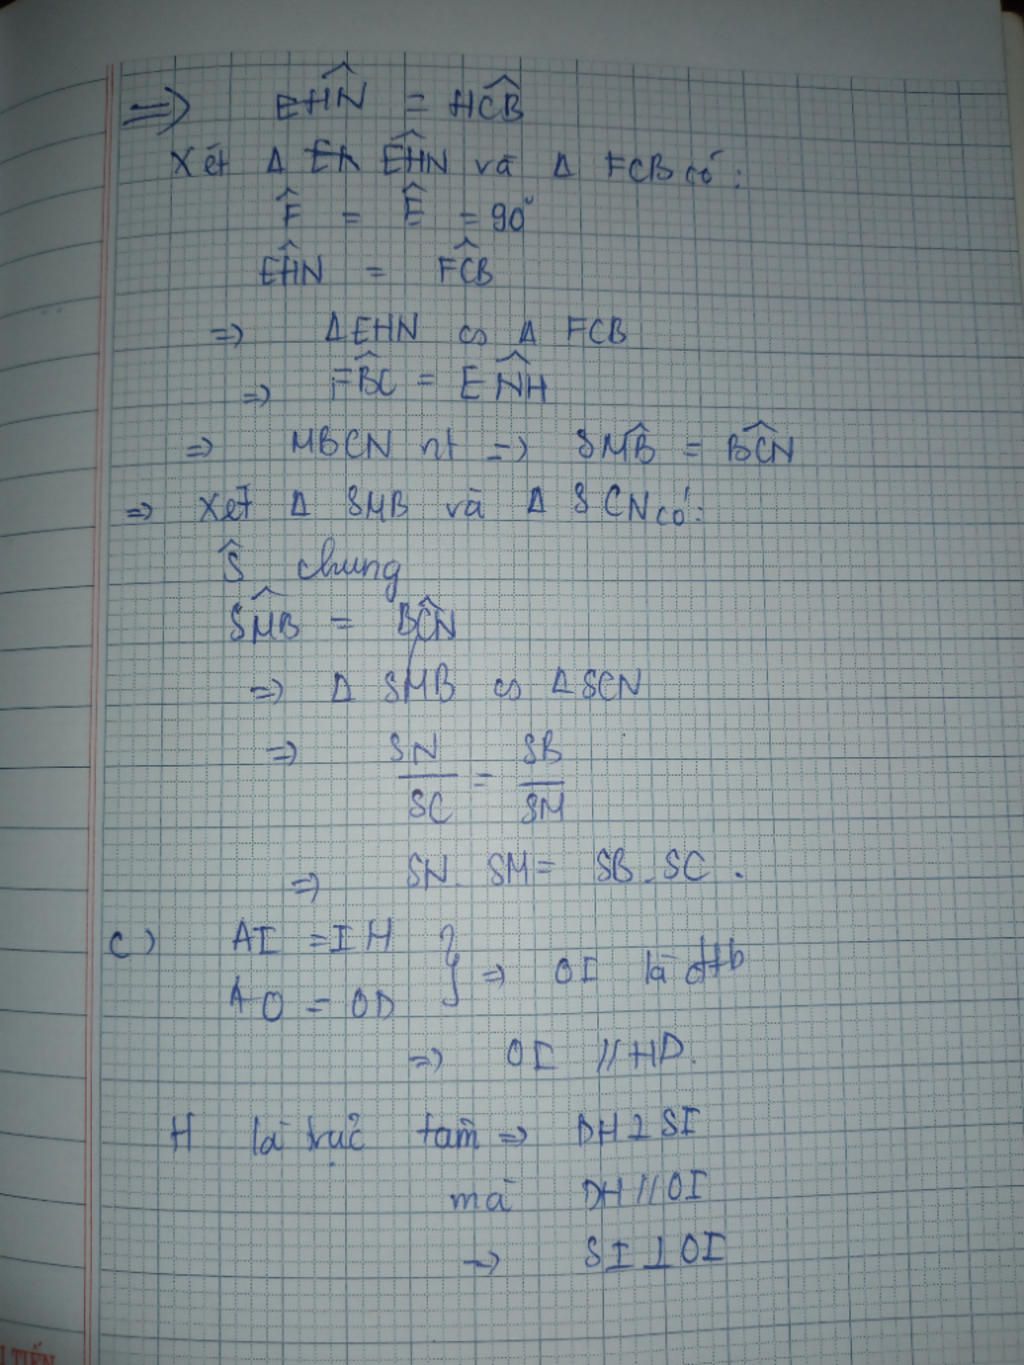 => EHN = HCB
Xét Δ EHN và Δ FCB có:
F = E = 90°
EHN = FCB
=> ΔEHN ∽ Δ FCB
=> FBC = ENH
=> MBCN nt => SMB = BCN
=> Xét Δ SMB và Δ SCN có:
S chung
SMB = BCN
=> Δ SMB ∽ ΔSCN
=> SN/SC = SB/SM
=> SN. SM = SB. SC.
c) AI = IH
AO = OD } => OI là đtb
=> OI // HD.
H là trực tâm => DH ⊥ SI
mà DH // OI
-> SI ⊥ OI
I TIẾN